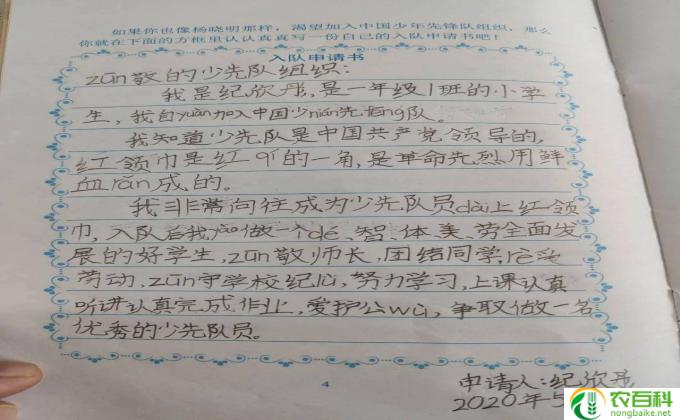 如果你也像杨晓明那样，渴望加入中国少年先锋队组织，那么
你就在下面的方框里认认真真写一份自己的入队申请书吧！
入队申请书
zūn敬的少先队组织：
我是纪欣彤，是一年级1班的小学
生，我自yuàn加入中国少nián先fēng队。
我知道少先队是中国共产党领导的，
红领巾是红qí的一角，是革命先烈用鲜
血rǎn成的。
我非常向往成为少先队员dài上红领
巾，入队后我yào做一个dé、智、体、美、劳全面发
展的好学生，zūn敬师长，团结同学，rè爱
劳动，zūn守学校纪lǜ，努力学习，上课认真
听讲认真完成作业，爱护公wù，争取做一名
优秀的少先队员。
申请人：纪欣彤
2020年5
4
农百科
nongbaike.net